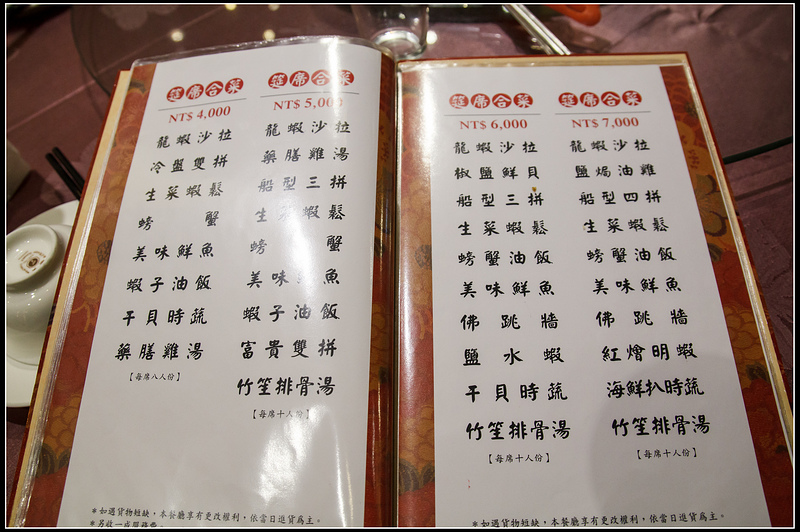 筵席合菜
NT$ 4,000
龍蝦沙拉
冷盤雙拼
生菜蝦鬆
螃蟹
美味鮮魚
蝦子油飯
干貝時蔬
藥膳雞湯
【每席八人份】
筵席合菜
NT$ 5,000
龍蝦沙拉
藥膳雞湯
船型三拼
生菜蝦鬆
螃蟹
美味 魚
蝦子油飯
富貴雙拼
竹笙排骨湯
【每席十人份】
*如遇貨物短缺,本餐廳享有更改權利,依當日進貨為主。
*另收一成服務費。
筵席合菜
NT$ 6,000
龍蝦沙拉
椒鹽鮮貝
船型三拼
生菜蝦鬆
螃蟹油飯
美味鮮魚
佛跳牆
鹽水蝦
干貝時蔬
竹笙排骨湯
【每席十人份】
筵席合菜
NT$ 7,000
龍蝦沙拉
鹽焗油雞
船型四拼
生菜蝦鬆
螃蟹油飯
美味鮮魚
佛跳牆
紅燴明蝦
海鮮扒時蔬
竹笙排骨湯
【每席十人份】
*如遇貨物短缺,本餐廳享有更改權利,依當日進貨為主。